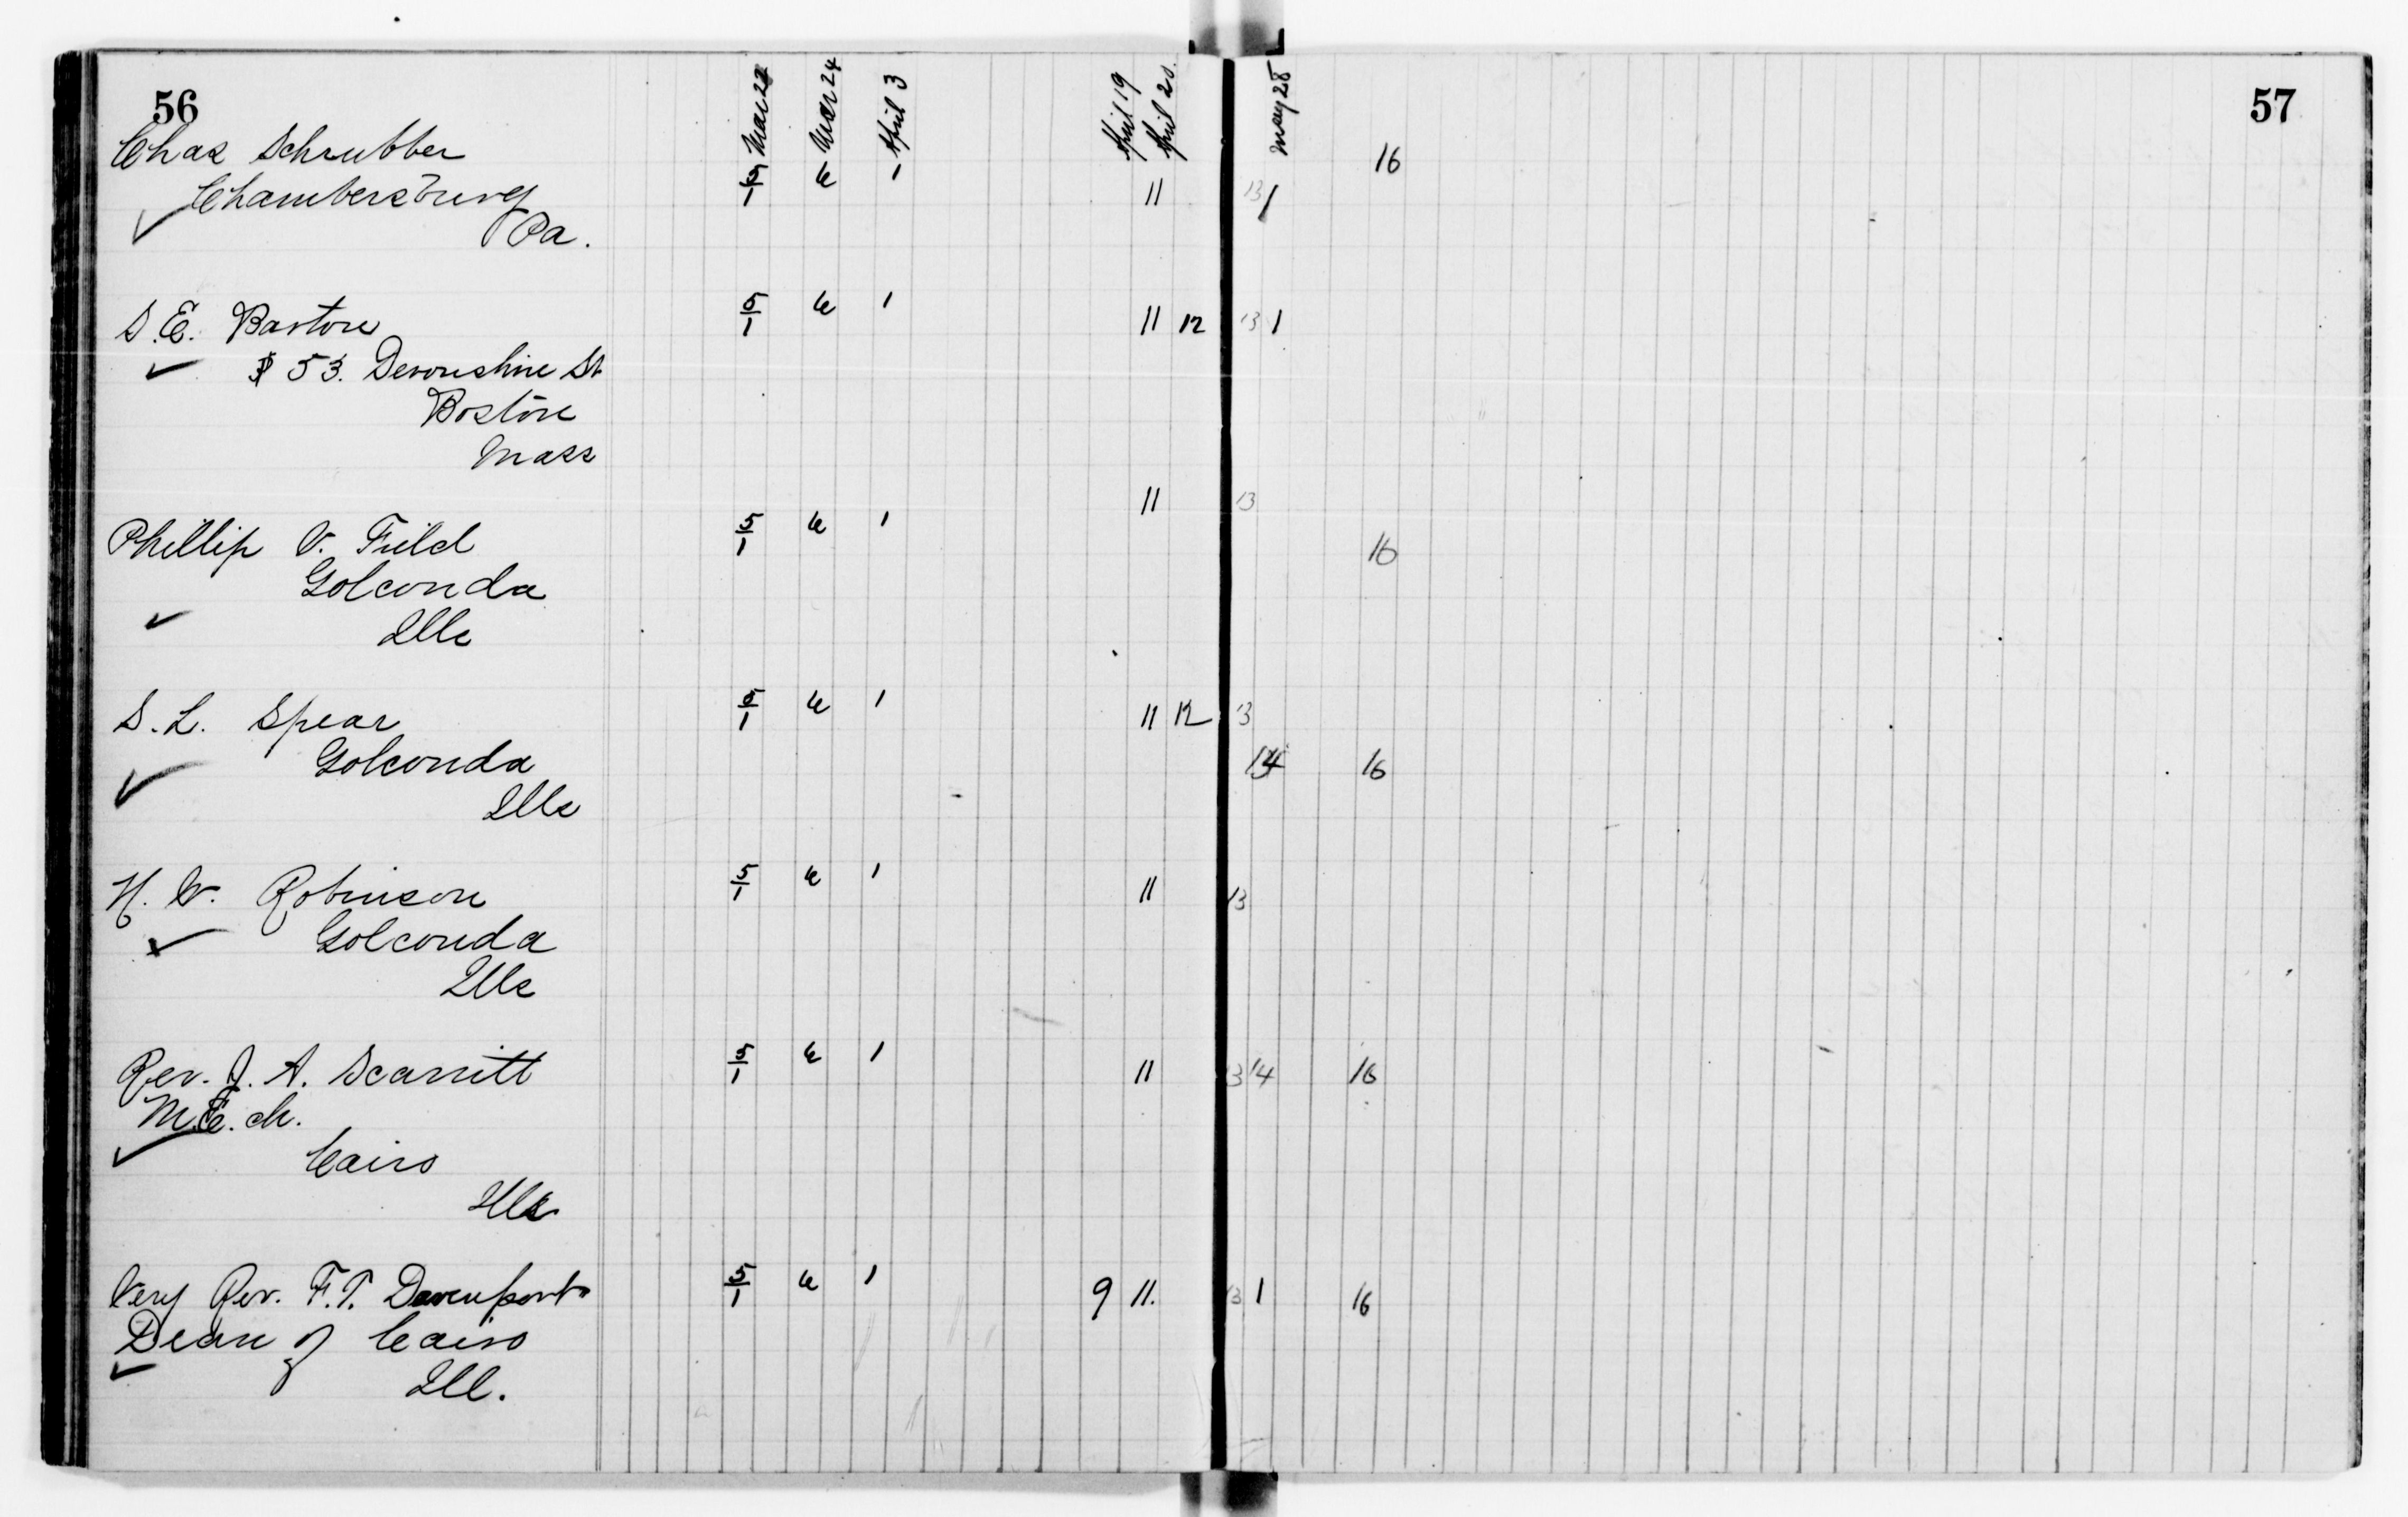 56
57
Mar 22 Mar 24 April 3 April 19 April 20. May 28
Chas Schrubber 16
5/1 6 1 11 13 1
Chambersburg
Pa.
S.E. Barton 5/1 6 1 11 12 13 1
53. Devonshire St
Boston
Mass
11 13
Phillip V. Field 5/1 6 1 16
Golconda
Ills
S. L. Spear 5/1 6 1 11 12 13
Golconda 14 16
Ills
H. V. Robinson 5/1 6 1 11 13
Golconda
Ills
Rev. J. A. Scarritt 5/1 6 1 11 13 14 16
M.E. ch.
Cairo
Ills
Very Rev. F.P. Davenport 5/1 6 1 9 11. 13 1 16
Dean of Cairo
Ill.